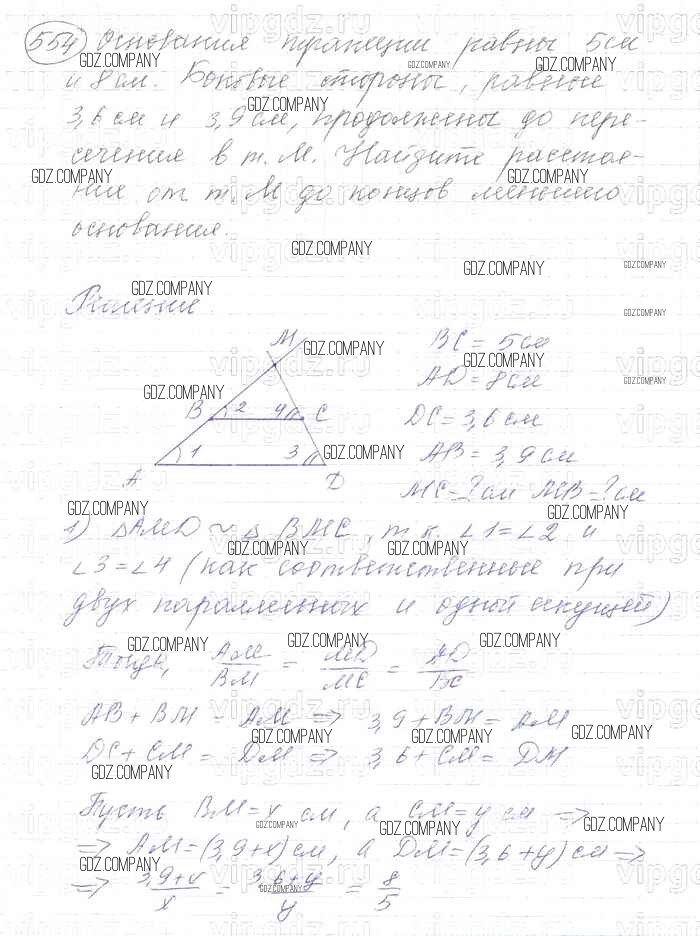 554 Основания трапеции равны 5см
и 8 см. Боковые стороны, равные
3,6 см и 3,9 см, продолжены до пере-
сечения в т. М. Найдите расстоя-
ние от т. М до концов меньшего
основания.
Решение.
M
B 2 4 C
1 3
A D
BC = 5см
AD = 8см
DC = 3,6 см
AB = 3,9 см
MC = ? см MB = ? см
1) △AMD ~ △BMC, т.к. ∠1 = ∠2 и
∠3 = ∠4 (как соответственные при
двух параллельных и одной секущей)
Тогда, AM/BM = MD/MC = AD/BC
AB + BM = AM ⇒ 3,9 + BM = AM
DC + CM = DM ⇒ 3,6 + CM = DM
Пусть BM = x см, а CM = y см ⇒
⇒ AM = (3,9 + x) см, а DM = (3,6 + y) см ⇒
⇒ 3,9 + x/x = 3,6 + y/y = 8/5
GDZ.COMPANY
vipgdz.ru